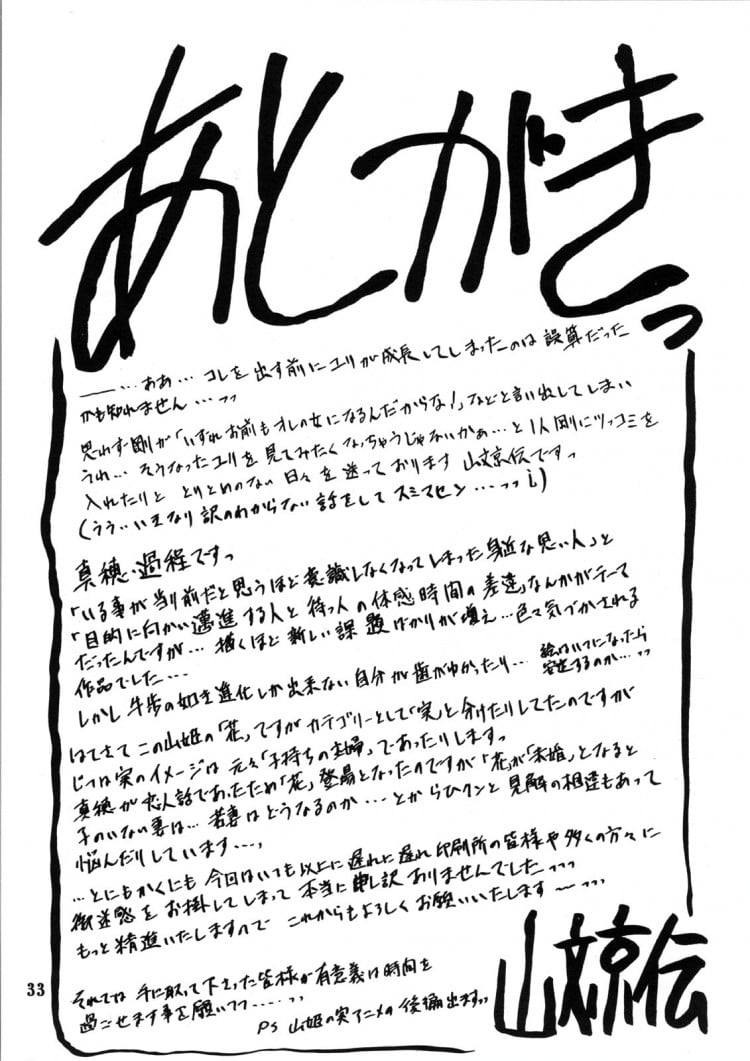 あとがきっ
―…ああ… コレを出す前にユリが成長してしまったのは誤算だった
かも知れません…っっ
思わず剛が「いずれお前もオレの女になるんだからな!」などと言い出してしまい
うれ… そうなったユリを見てみたくなっちゃうじゃないかぁ…と1人剛にツッコミを
入れたりと とりとめのない日々を送っております 山文京伝ですっ
(うぅ…いきなり訳のわからない話をして スミマセン…っっ
真穂・過程ですっ
「いる事が当り前だと思うほど意識しなくなってしまった身近な思い人」と
「目的に向かい邁進する人と待つ人の体感時間の差違」なんかがテーマ
だったんですが… 描くほど新しい課題ばかりが増え…色々気づかされる
作品でした…
しかし牛歩の如き進化しか出来ない自分が歯がゆかったり…
絵はいつになったら
安定するのか…っっ
はてさて この山姫の「花」ですが カテゴリーとして「実」と分けたりしてたのですが
じつは実のイメージは元々「子持ちの主婦」であったりしますっ
真穂が恋人話であったため「花」登場となったのですが「花」が「未婚」となると
子のいない妻は… 若妻はどうなるのか… とからひクンと見解の相違もあって
悩んだりしています…っ
…とにもかくにも 今回はいつも以上に遅れに遅れ 印刷所の皆様や多くの方々に
御迷惑をお掛してしまって 本当に申し訳ありませんでしたっっっ
もっと精進いたしますので これからもよろしくお願いいたします~っっっ
それでは 手に取って下さった皆様が有意義な時間を
過ごせます事を願いつつ……っっ
PS 山姫の実アニメの後編出ますっっ
山文京伝
33